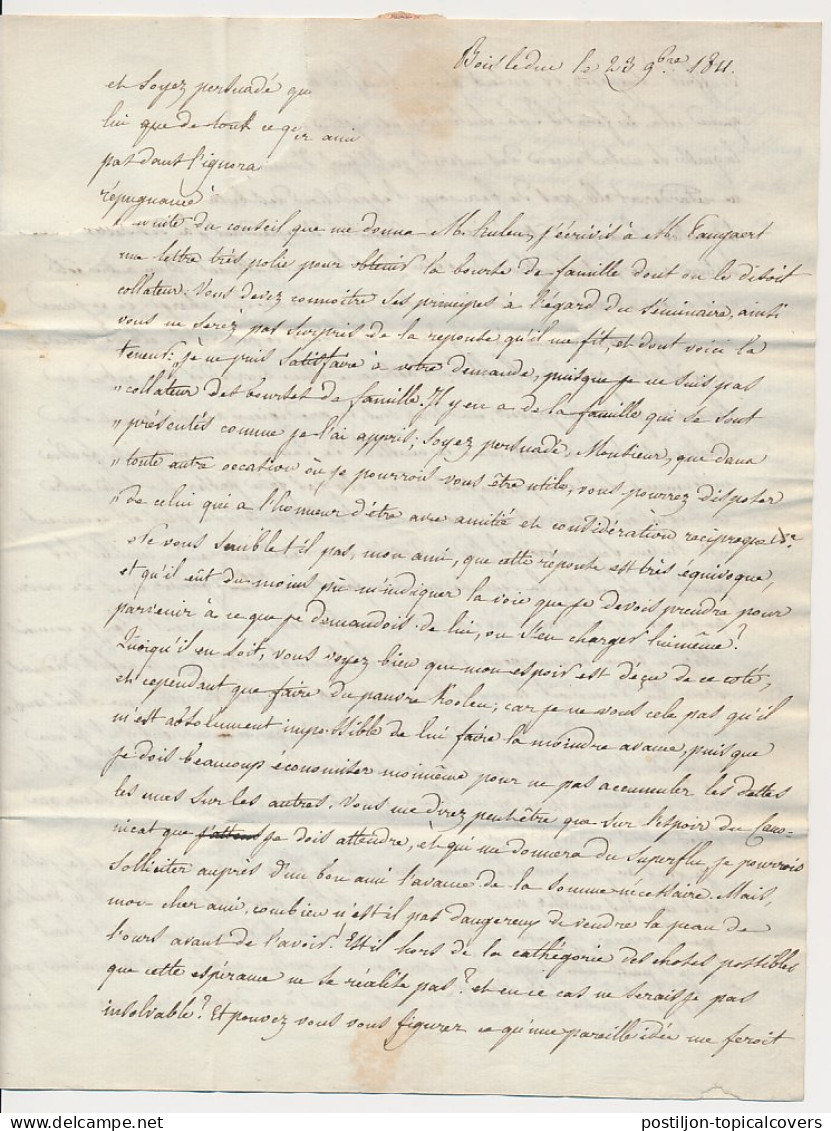 Bois le duc le 23 9bre 1811.
et soyez persuadé qu
lui que de tout ce q
ami
pas dont l'ignora
répugnance
suite du conseil que me donna M. j'écrivis à M.
une lettre très polie pour obtenir la bourse de famille dont on le disoit
collateur. Vous devez connoitre ses principes à l'égard du Séminaire, ainsi
vous ne serez pas surpris de la reponse qu'il me fit, et dont voici la
teneur: „je ne puis satisfaire à votre demande, puisque je ne suis pas
„collateur des bourses de famille. Il y en a de la famille qui se sont
„présentés comme je l'ai appris; soyez persuadé, Monsieur, que dans
„toute autre occasion où je pourrois vous être utile, vous pourrez disposer
„de celui qui a l'honneur d'être avec amitié et considération réciproque &c.
Ne vous semble t'il pas, mon ami, que cette réponse est très équivoque,
et qu'il eût du moins pu m'indiquer la voie que je devois prendre pour
parvenir à ce que je demandois de lui, ou s'en charger lui même?
Quoiqu'il en soit, vous voyez bien que mon espoir est déçu de ce coté,
et cependant que faire du pauvre Koolen; car je ne vous cele pas qu'il
m'est absolument impossible de lui faire la moindre avance, puis que
je dois beaucoup économiser moi même pour ne pas accumuler les dettes
les unes sur les autres. Vous me direz peut être que sur l'espoir du Cano-
nicat que j'attens je dois attendre, et qui me donnera du superflu, je pourrois
solliciter auprès d'un bon ami l'avance de la somme nécessaire. Mais,
mon cher ami, combien n'est il pas dangereux de vendre la peau de
l'ours avant de l'avoir? Est il hors de la cathégorie des choses possibles
que cette espérance ne se réalise pas? et en ce cas ne serais je pas
insolvable? Et pouvez vous vous figurer ce qu'une pareille idée me feroit
postiljon-topicalcovers